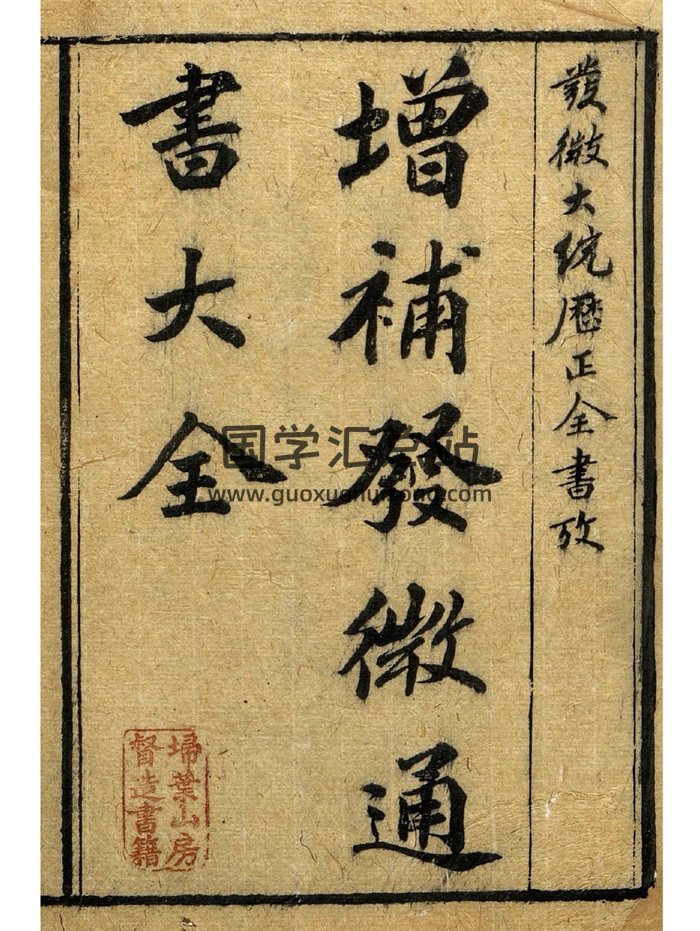 發微大統曆正全書攷
增補發微通
書大全
国学汇总站
www.guoxuehuizong.com
埽葉山房
督造書籍